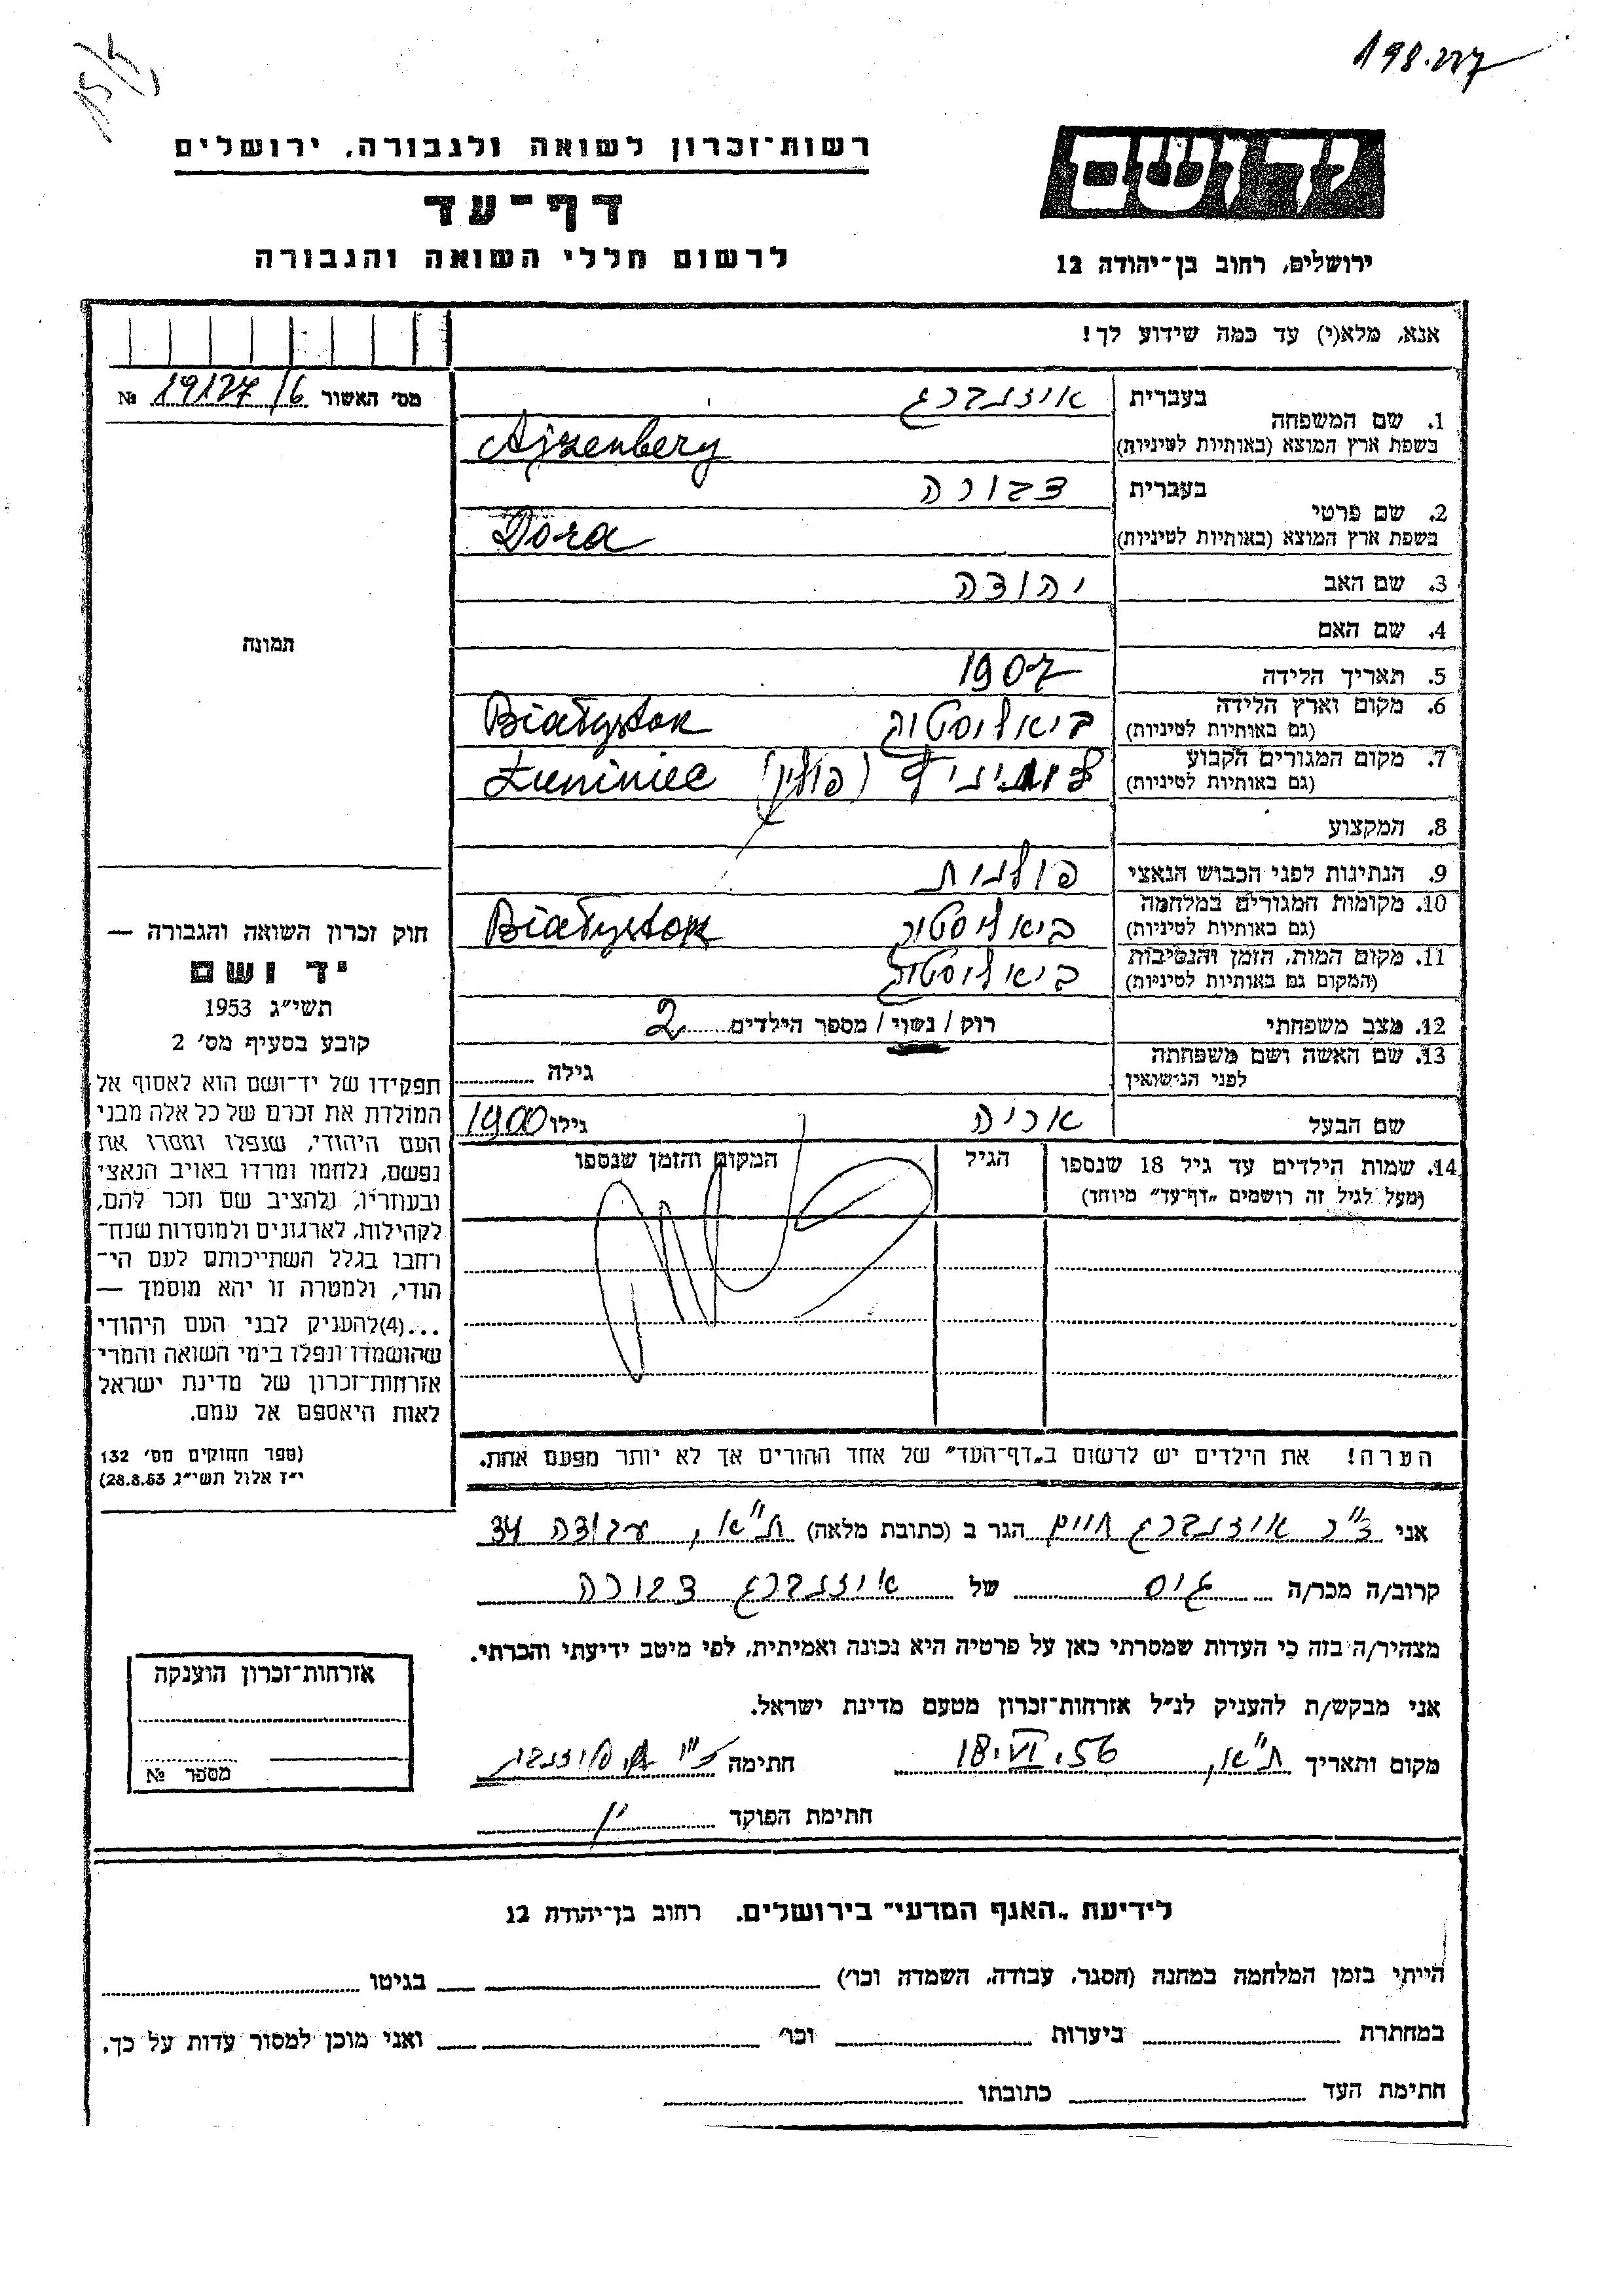 198.227
15/5
רשות־זכרון לשואה ולגבורה, ירושלים
דף־עד
לרשום חללי השואה והגבורה
יד ושם
ירושלים, רחוב בן־יהודה 12
אנא, מלא(י) עד כמה שידוע לך!
מס׳ האשור 19127/6 №
1. שם המשפחה בעברית איזנברג
בשפת ארץ המוצא (באותיות לטיניות) Ajzenberg
2. שם פרטי בעברית דבורה
בשפת ארץ המוצא (באותיות לטיניות) Dora
3. שם האב יהודה
4. שם האם
תמונה
5. תאריך הלידה 1907
6. מקום וארץ הלידה ביאליסטוק Białystok
(גם באותיות לטיניות)
7. מקום המגורים הקבוע (פולין) Łuniniec
(גם באותיות לטיניות)
8. המקצוע
9. הנתינות לפני הכבוש הנאצי פולנית
10. מקומות המגורים במלחמה ביאליסטוק Białystok
(גם באותיות לטיניות)
11. מקום המות, הזמן והנסיבות ביאליסטוק
(המקום גם באותיות לטיניות)
12. מצב משפחתי רוק / נשוי / מספר הילדים 2
13. שם האשה ושם משפחתה
לפני הנישואין גילה
שם הבעל אריה גילו 1900
14. שמות הילדים עד גיל 18 שנספו הגיל המקום והזמן שנספו
(מעל לגיל זה רושמים „דף־עד״ מיוחד)
הערה! את הילדים יש לרשום ב„דף־העד״ של אחד ההורים אך לא יותר מפעם אחת.
חוק זכרון השואה והגבורה —
יד ושם
תשי״ג 1953
קובע בסעיף מס׳ 2
תפקידו של יד־ושם הוא לאסוף אל
המולדת את זכרם של כל אלה מבני
העם היהודי, שנפלו ומסרו את
נפשם, נלחמו ומרדו באויב הנאצי
ובעוזריו, ולהציב שם וזכר להם,
לקהילות, לארגונים ולמוסדות שנח־
רחבו בגלל השתייכותם לעם הי־
הודי, ולמטרה זו יהא מוסמך —
...(4)להעניק לבני העם היהודי
שהושמדו ונפלו בימי השואה והמרי
אזרחות־זכרון של מדינת ישראל
לאות היאספם אל עמם.
(ספר החוקים מס׳ 132
י״ז אלול תשי״ג 28.8.53)
אני ד״ר איזנברג חיים הגר ב (כתובת מלאה) ת״א, עבודה 34
קרוב/ה מכר/ה גיס של איזנברג דבורה
מצהיר/ה בזה כי העדות שמסרתי כאן על פרטיה היא נכונה ואמיתית, לפי מיטב ידיעתי והכרתי.
אני מבקש/ת להעניק לנ״ל אזרחות־זכרון מטעם מדינת ישראל.
מקום ותאריך ת״א, 18.VI.56 חתימה
חתימת הפוקד
אזרחות־זכרון הוענקה
מספר №
לידיעת „האגף המדעי״ בירושלים. רחוב בן־יהודה 12
הייתי בזמן המלחמה במחנה (הסגר, עבודה, השמדה וכו׳) בגיטו
במחתרת ביערות וכו׳ ואני מוכן למסור עדות על כך.
חתימת העד כתובתו